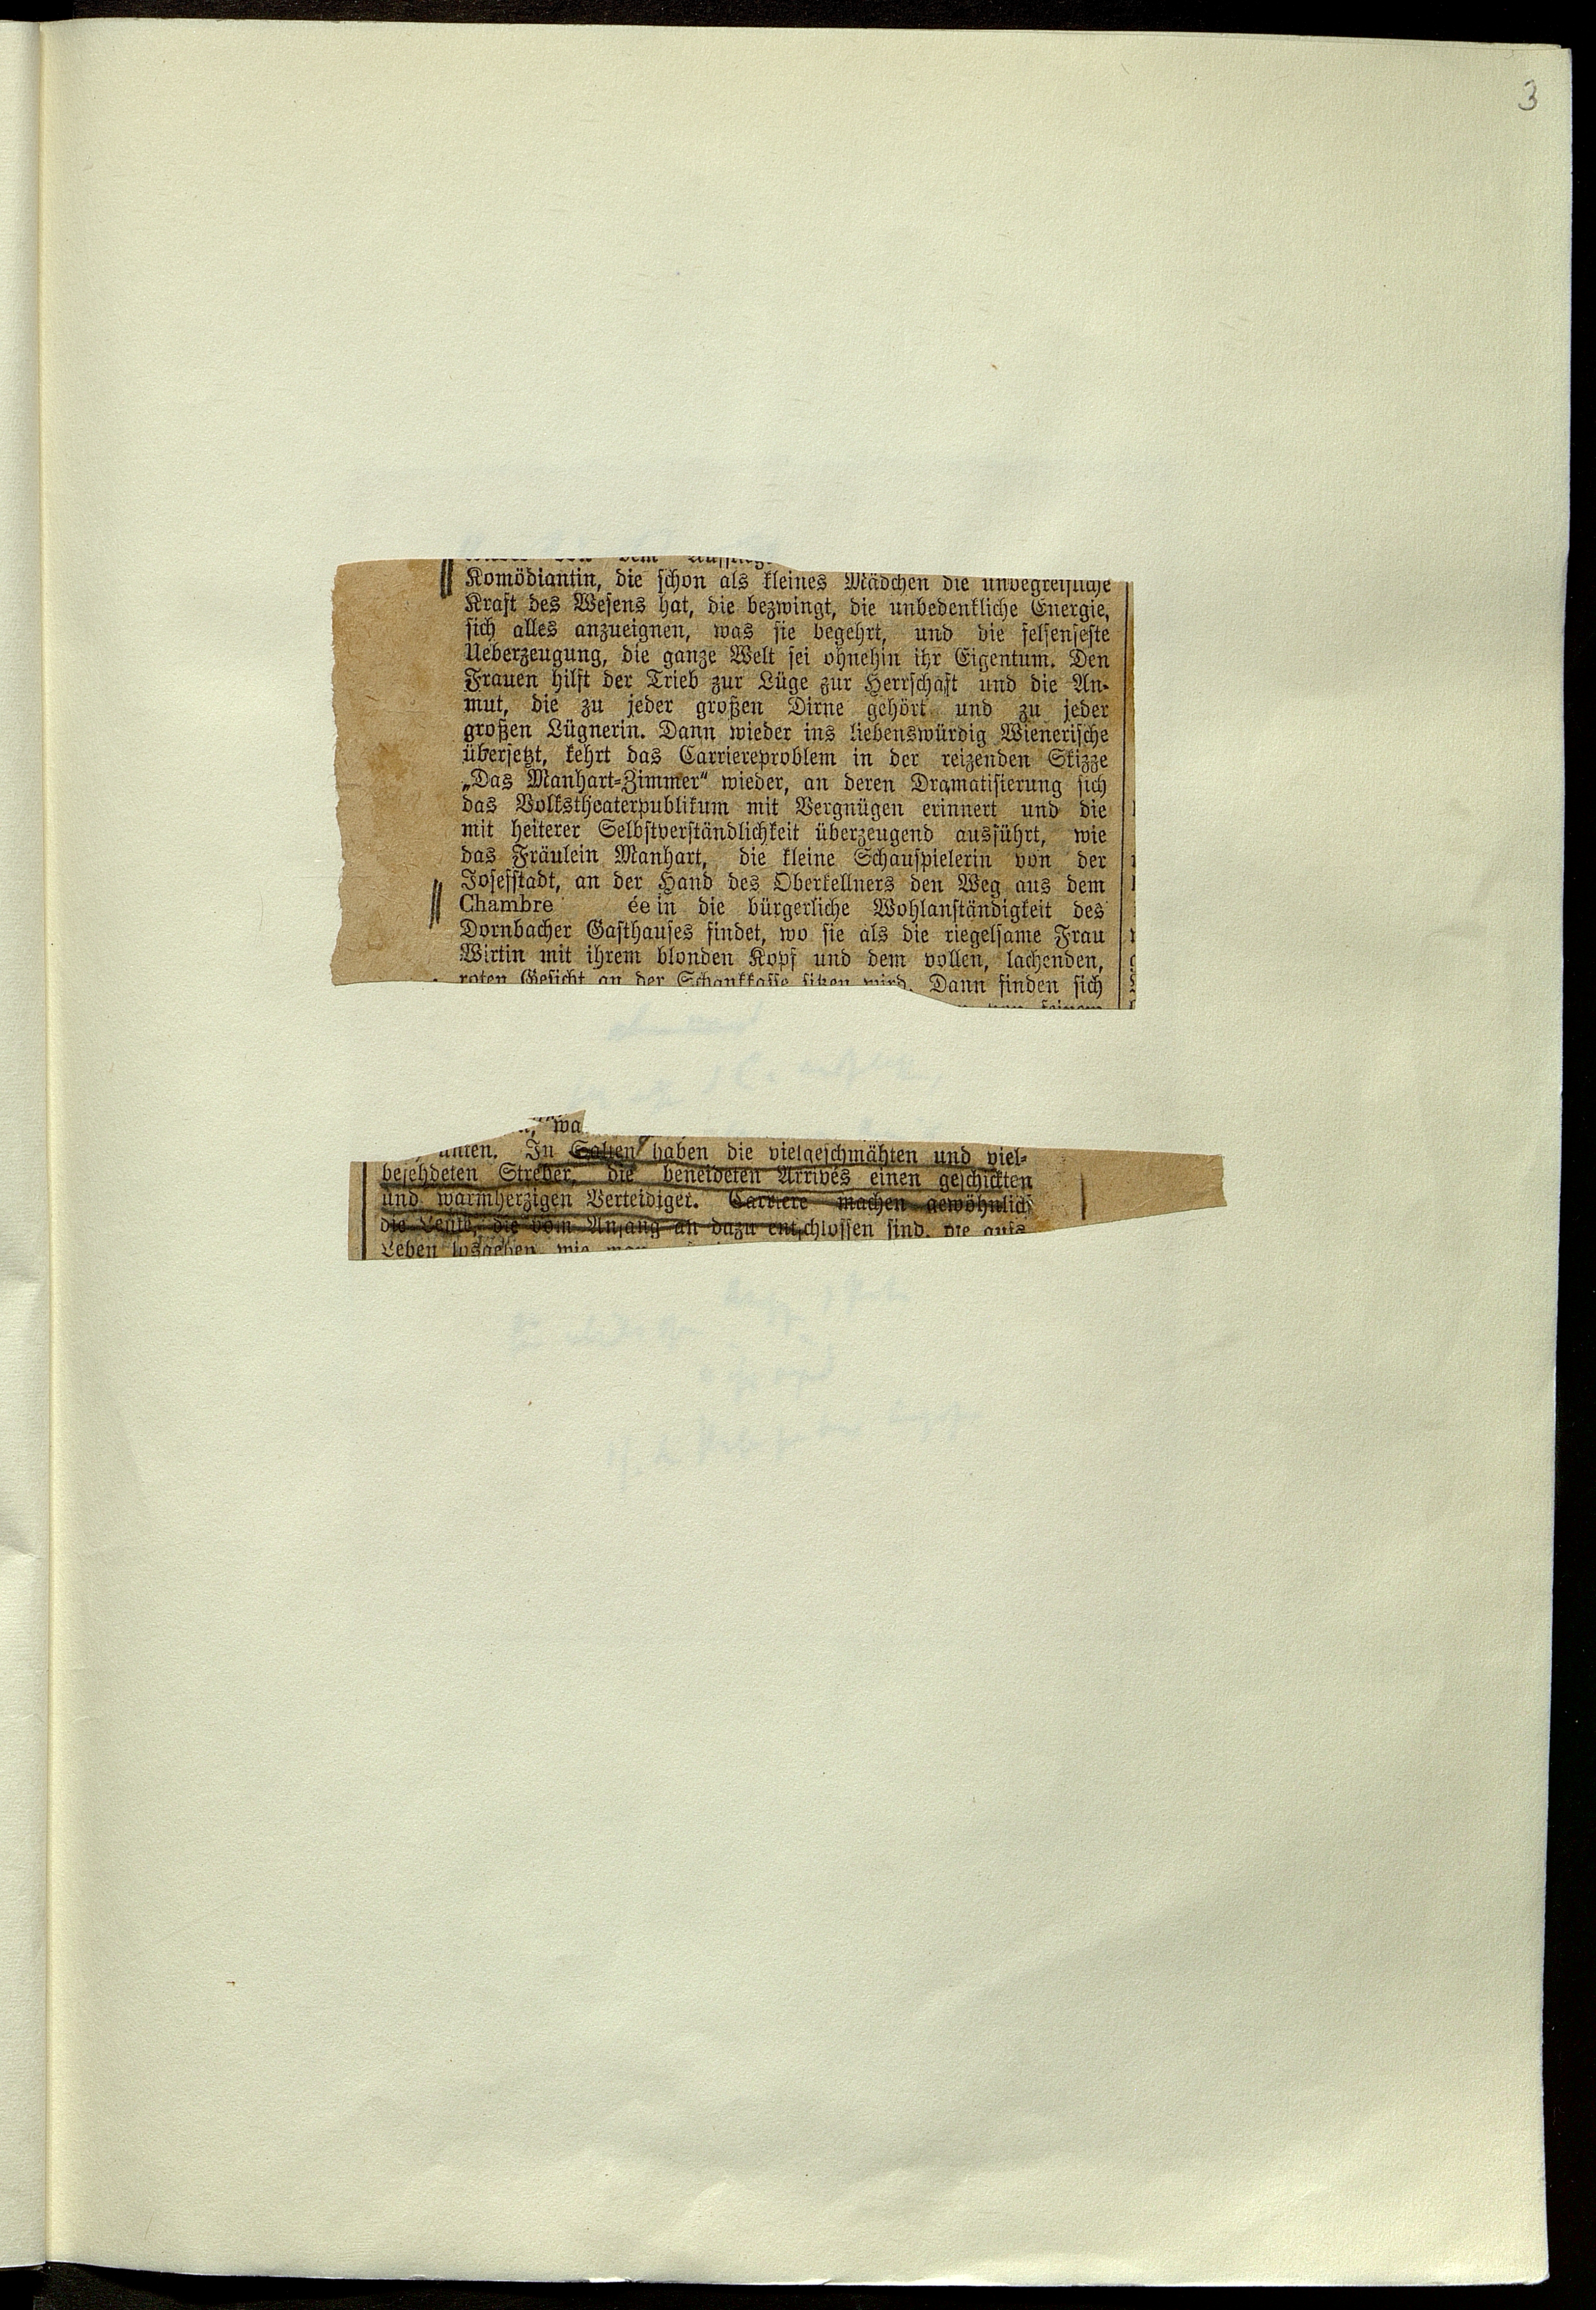 3
dem
Komödiantin, die schon als kleines Mädchen die unbegreifliche
Kraft des Wesens hat, die bezwingt, die unbedenkliche Energie,
sich alles anzueignen, was sie begehrt, und die felsenfeste
Ueberzeugung, die ganze Welt sei ohnehin ihr Eigentum. Den
Frauen hilft der Trieb zur Lüge zur Herrschaft und die An-
mut, die zu jeder großen Dirne gehört und zu jeder
großen Lügnerin. Dann wieder ins liebenswürdig Wienerische
übersetzt, kehrt das Carriereproblem in der reizenden Skizze
„Das Manhart-Zimmer“ wieder, an deren Dramatisierung sich
das Volkstheaterpublikum mit Vergnügen erinnert und die
mit heiterer Selbstverständlichkeit überzeugend ausführt, wie
das Fräulein Manhart, die kleine Schauspielerin von der
Josefstadt, an der Hand des Oberkellners den Weg aus dem
Chambre ée in die bürgerliche Wohlanständigkeit des
Dornbacher Gasthauses findet, wo sie als die riegelsame Frau
Wirtin mit ihrem blonden Kopf und dem vollen, lachenden,
roten Gesicht an der Schankkasse sitzen wird. Dann finden sich
wa
In Salten haben die vielgeschmähten und viel-
befehdeten Streber, die beneideten Arrivés einen geschickten
und warmherzigen Verteidiger. Carriere machen gewöhnlich
die Leute, die vom Anfang an dazu entschlossen sind, die aufs
Leben losgehen, wie man